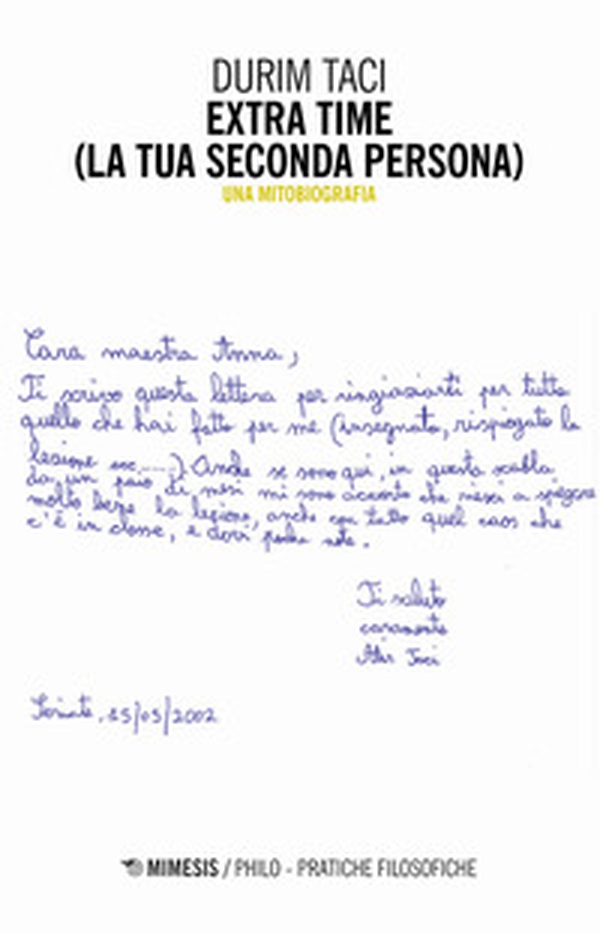 DURIM TACI
EXTRA TIME
(LA TUA SECONDA PERSONA)
UNA MITOBIOGRAFIA
Cara maestra Anna,
Ti scrivo questa lettera per ringraziarti per tutto
quello che hai fatto per me (insegnato, rispiegato la
lezione ecc.....). Anche se sono qui, in questa scuola
da un paio di mesi mi sono accorto che riesci a spiegare
molto bene la lezione, anche con tutto quel caos che
c'è in classe, e dovi poche note.
Ti saluto
caramente
Taci
15/05/2002
MIMESIS / PHILO - PRATICHE FILOSOFICHE